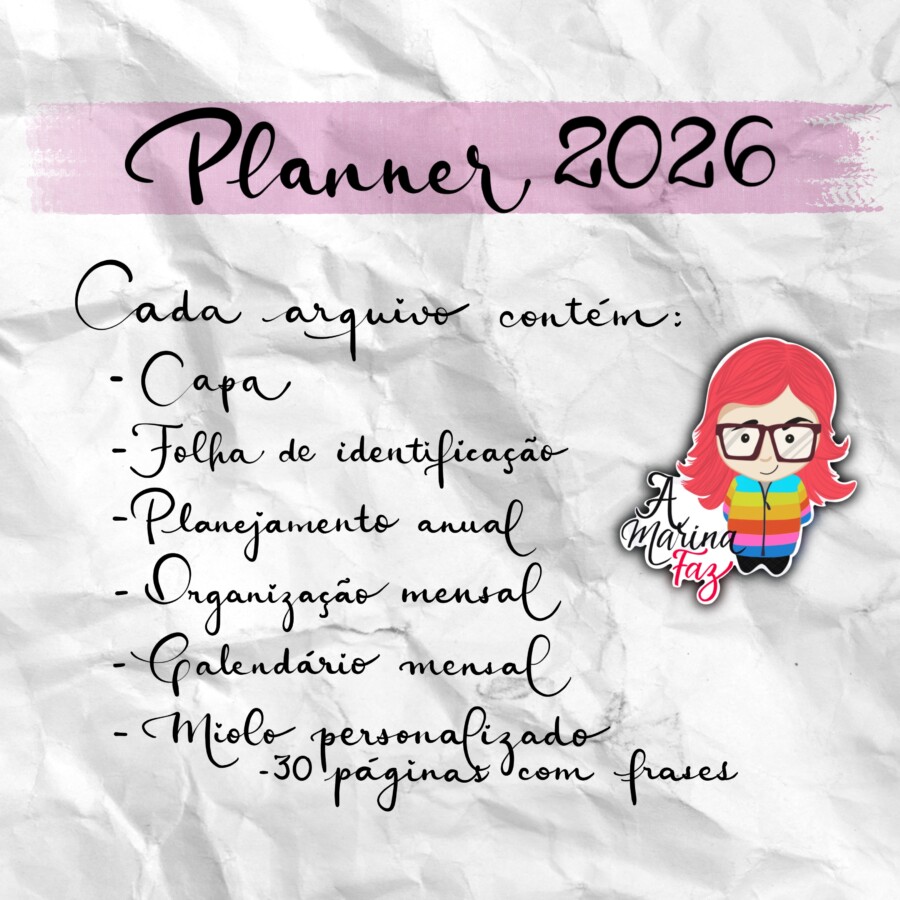 Planner 2026
Cada arquivo contém:
- Capa
- Folha de identificação
- Planejamento anual
- Organização mensal
- Calendário mensal
- Miolo personalizado
-30 páginas com frases
A
Marina
Faz